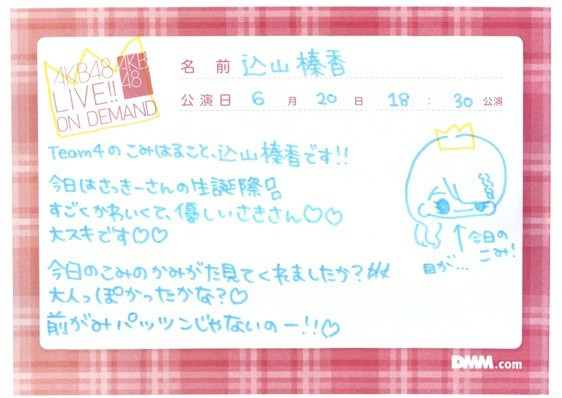 AKB48
LIVE!!
ON DEMAND
AKB
48
名前 込山榛香
公演日 6月20日 18:30公演
Team4のこみはること、込山榛香です!!
今日はさっきーさんの生誕際
すごくかわいくて、優しいさきさん♡♡
大スキです♡♡
今日のこみのかみがた見てくれましたか?
大人っぽかったかな?♡
前がみパッツンじゃないのー!!♡
今日の
こみ!
目が...
DMM.com